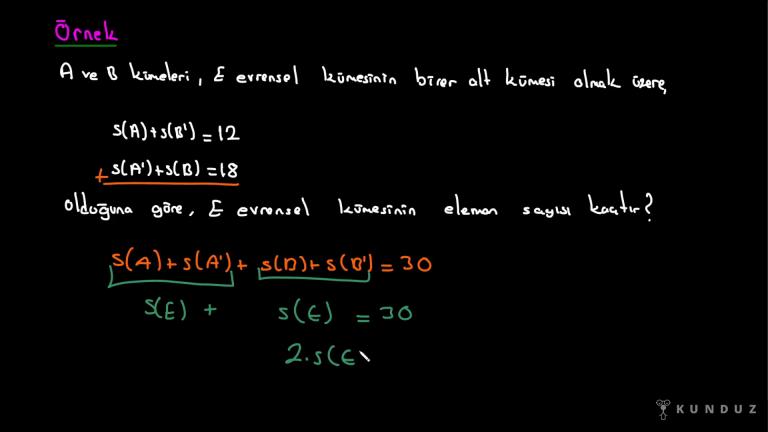 Örnek
A ve B kümeleri, E evrensel kümesinin birer alt kümesi olmak üzere,
s(A)+s(B')=12
+ s(A')+s(B)=18
olduğuna göre, E evrensel kümesinin eleman sayısı kaçtır?
s(A)+s(A')+s(B)+s(B')=30
s(E) + s(E) = 30
2.s(E
KUNDUZ